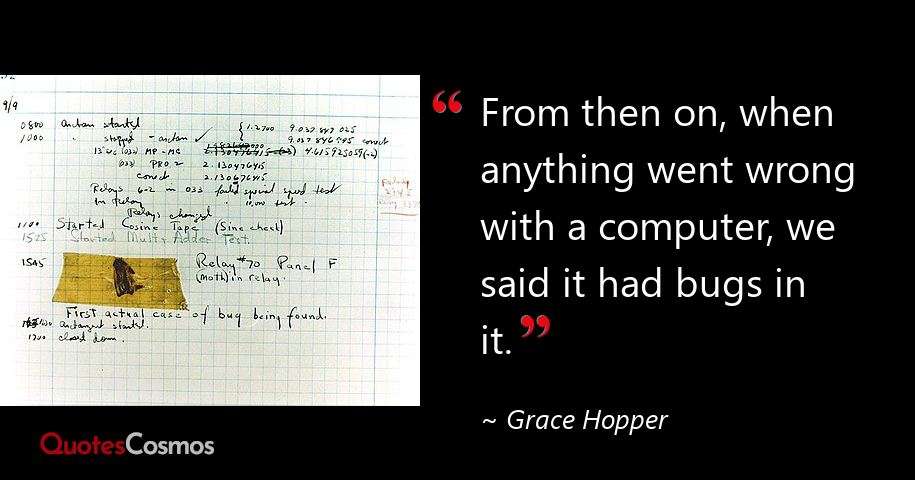 9/9
0800 Antan started
1000 " stopped - antan ✓
{ 1.2700 9.037 847 025
9.037 846 995 conect
13"uc (032) MP - MC 4.615925059(-2)
(033) PRO 2 2.130476415
conect 2.130676415
Relays 6-2 in 033 failed special speed test
in relay 10,000 test.
Relays changed
1100 Started Cosine Tape (Sine check)
1525 Started Mult+Adder Test.
1545 Relay #70 Panel F
(moth) in relay.
First actual case of bug being found.
antangent started.
1700 closed down.
“ From then on, when
anything went wrong
with a computer, we
said it had bugs in
it. ”
~ Grace Hopper
QuotesCosmos